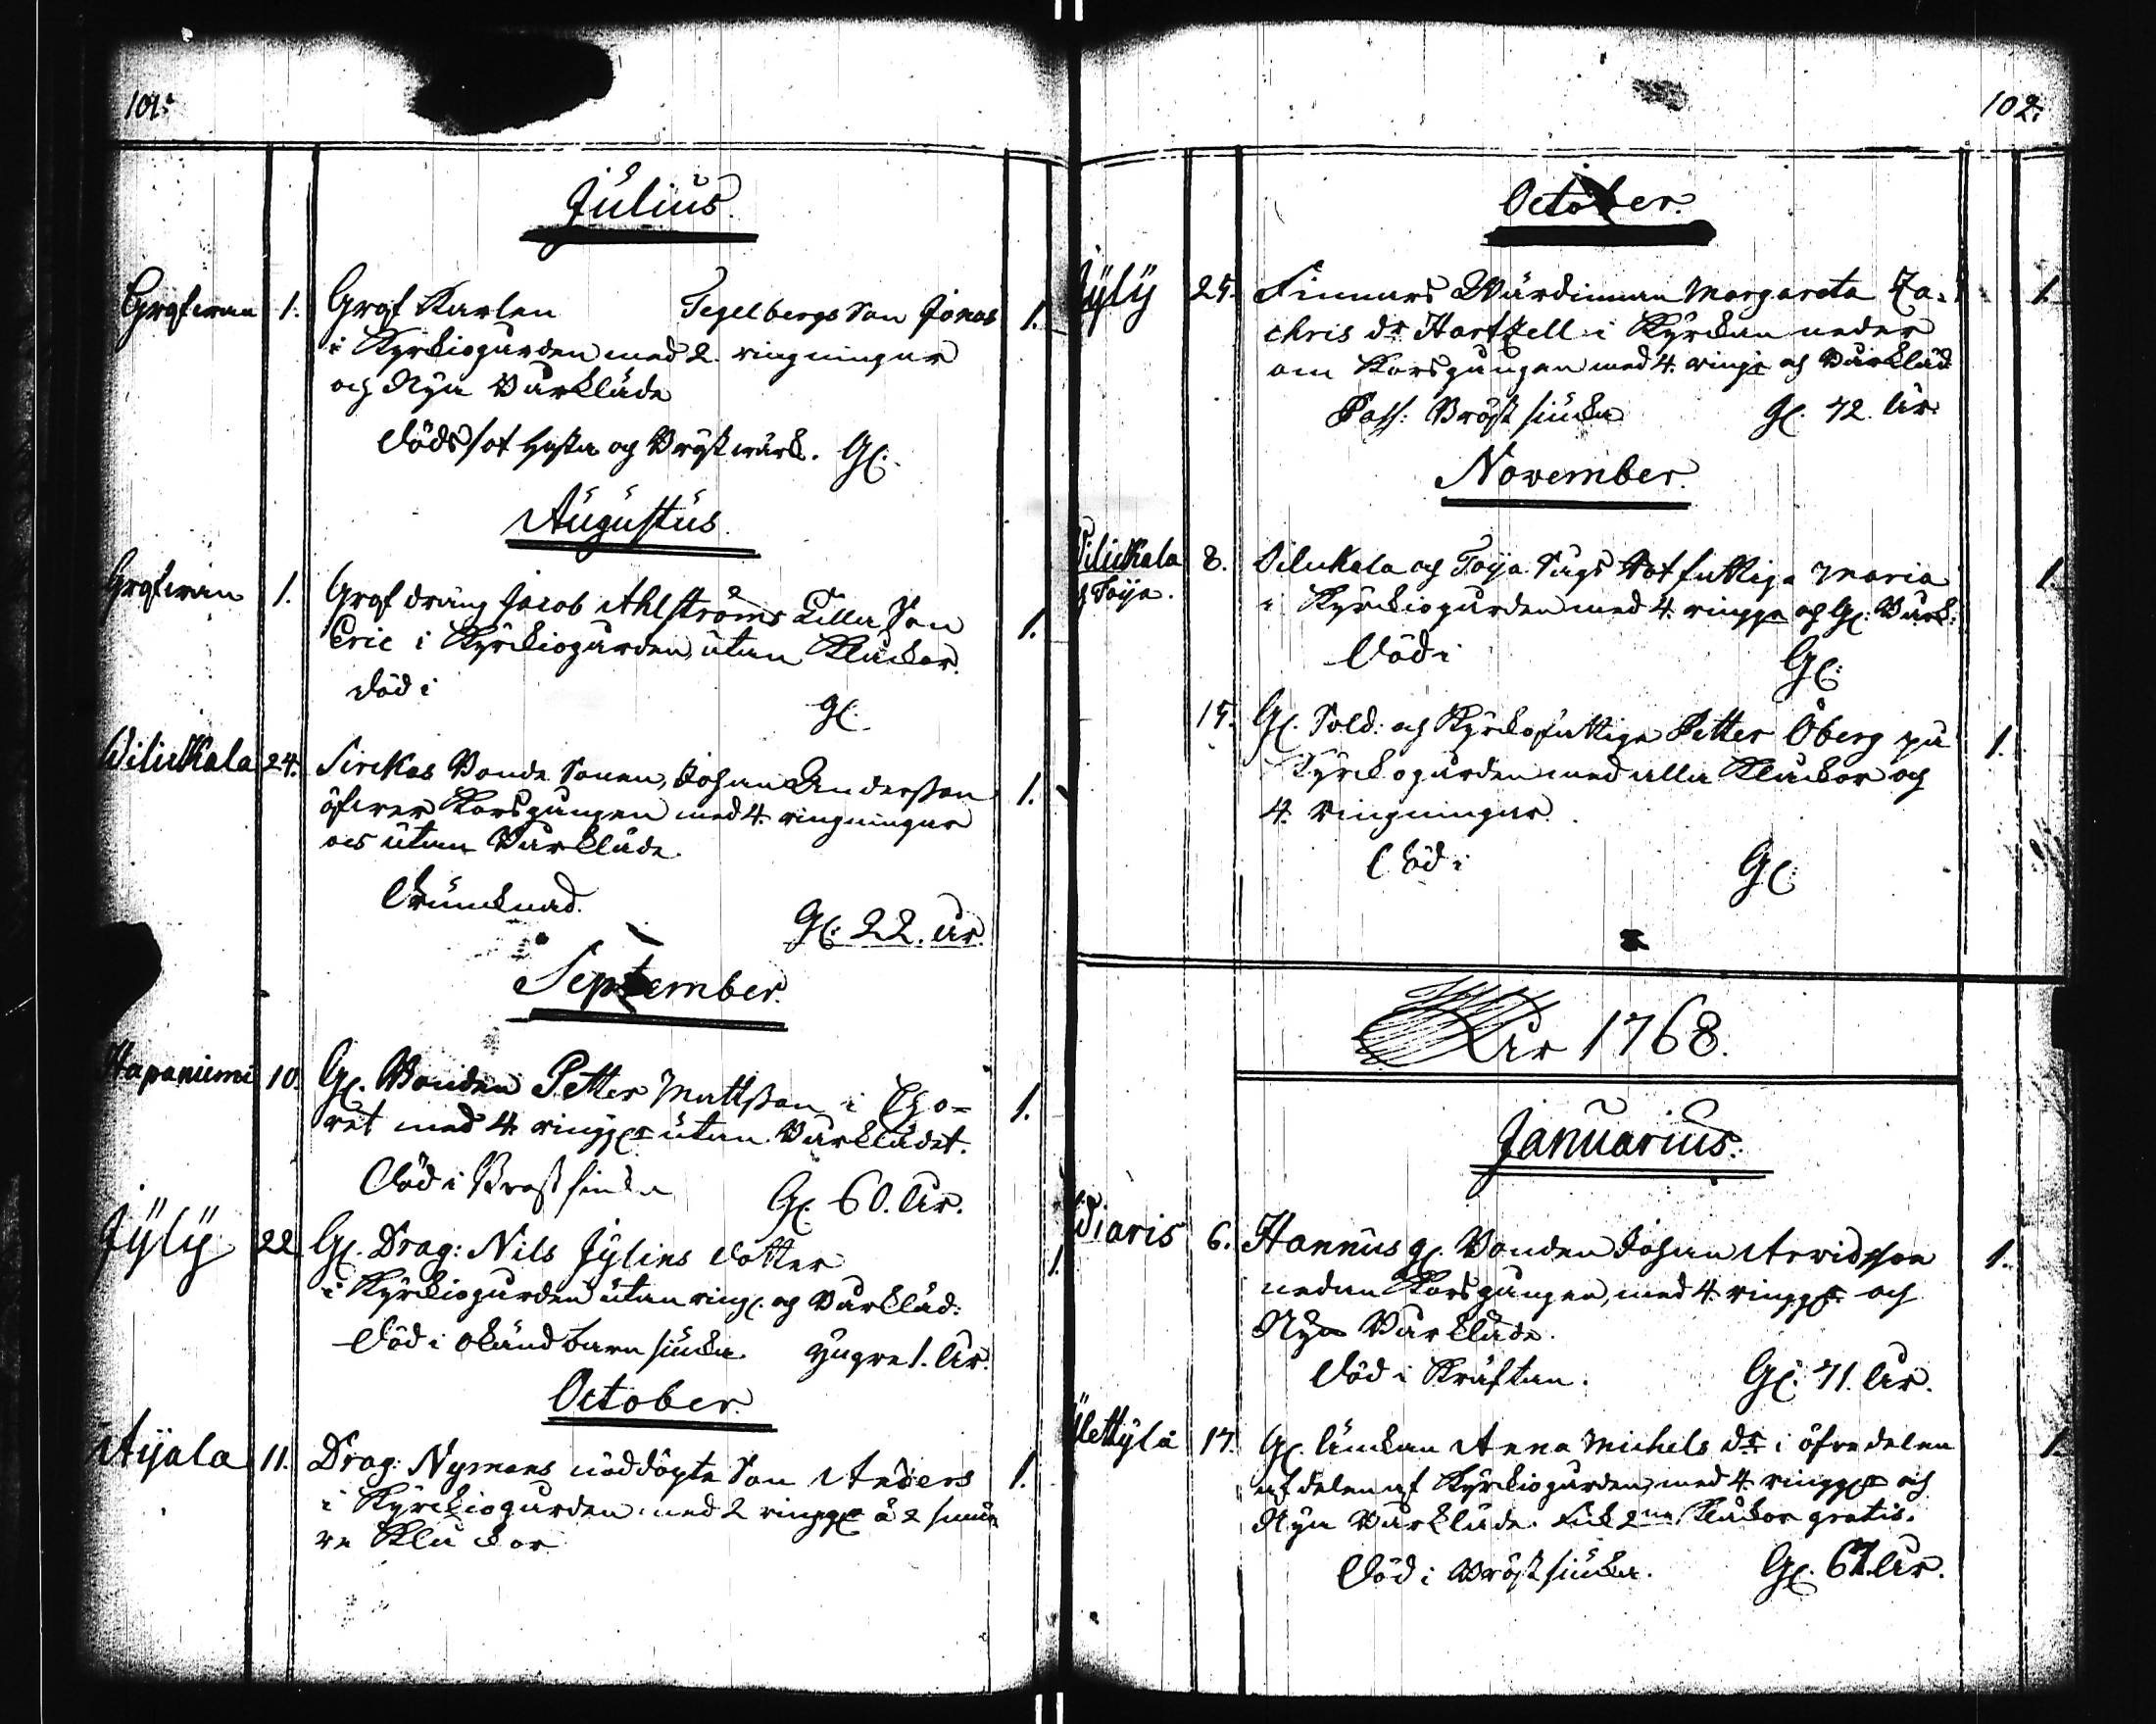 101:
Julius.
Grafwan 1. Graf Karlen Tegelbergs Son Jonas 1.
i Kyrkiogården med 2. ringningar
och Nya Bårkläde
Dödssot hosta och Bröstwärk. Gl:
Augustus
Grafwan 1. Graf dräng Jacob Ahlströms Lilla Son 1.
Eric i Kyrkiogården utan Klockor.
död i gl:
Wiluckala 24. Sirckas Bonde Sonen, Johan Andersson 1.
öfwer Korsgången med 4. ringningar
och utan Bårkläde
Drunknad. Gl: 22. år.
September.
Hapaniemi 10. Gl. Bonden Petter Mattsson i Cho- 1.
ret med 4. ringgr utan Bårklädet.
Död i Brostsiuka Gl: 60. år.
Jÿlÿ 22. Gl. Drag: Nils Jÿlins dotter 1.
i Kyrkiogården utan ring: och Bårkläd:
Död i okänd barnsiuka yngre 1. år.
October.
Aÿala 11. Drag: Nymans nöddöpta Son Anders 1.
i Kyrkiogården med 2 ringgr à 2 smär
re Kluckor
102:
October.
Jÿlÿ 25. Finnars Wärdinnan Margareta Za- 1.
chris dr Hartzell i Kyrckan neder
om Korsgången med 4. ringr och Bårkläd
Pass: Bröst siuka gl. 72. år.
November.
Wiluckala 8. Wiluckala och Toija Sågs Rotfattiga Maria 1.
& Toija. i Kyrckiogården med 4. ringgr och gl: Bårk:
Död i Gl:
15. Gl. Sold: och Kyrkofattiga Petter Öberg på 1.
Kyrckogården med alla Kluckor och
4. ringningar.
Död i Gl:
År 1768.
Januarius.
Wiaris 6. Hannus gl. Bonden Johan Arwidsson 1.
nedan Korsgången, med 4. ringgr och
Nya Bårkläde.
Död i Kräftan. Gl: 71. år.
Ylettÿlä 17. Gl. Änckan Anna Michels dr i öfre delen 1.
af delen af Kyrckiogården, med 4. ringgr och
Nya Bårkläde. Fick 2ne Kluckor gratis.
Död i Bröstsiuka. Gl: 67. år.